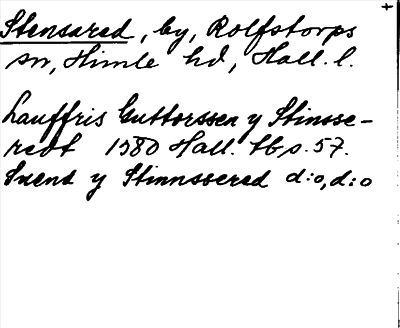 Stensared, by, Rolfstorps
sn, Himle hd, Hall. l.
Lauffris Guttorssen y Stinsse-
redt 1580 Hall. tb s. 57.
Suend y Stinnssered d:o, d:o